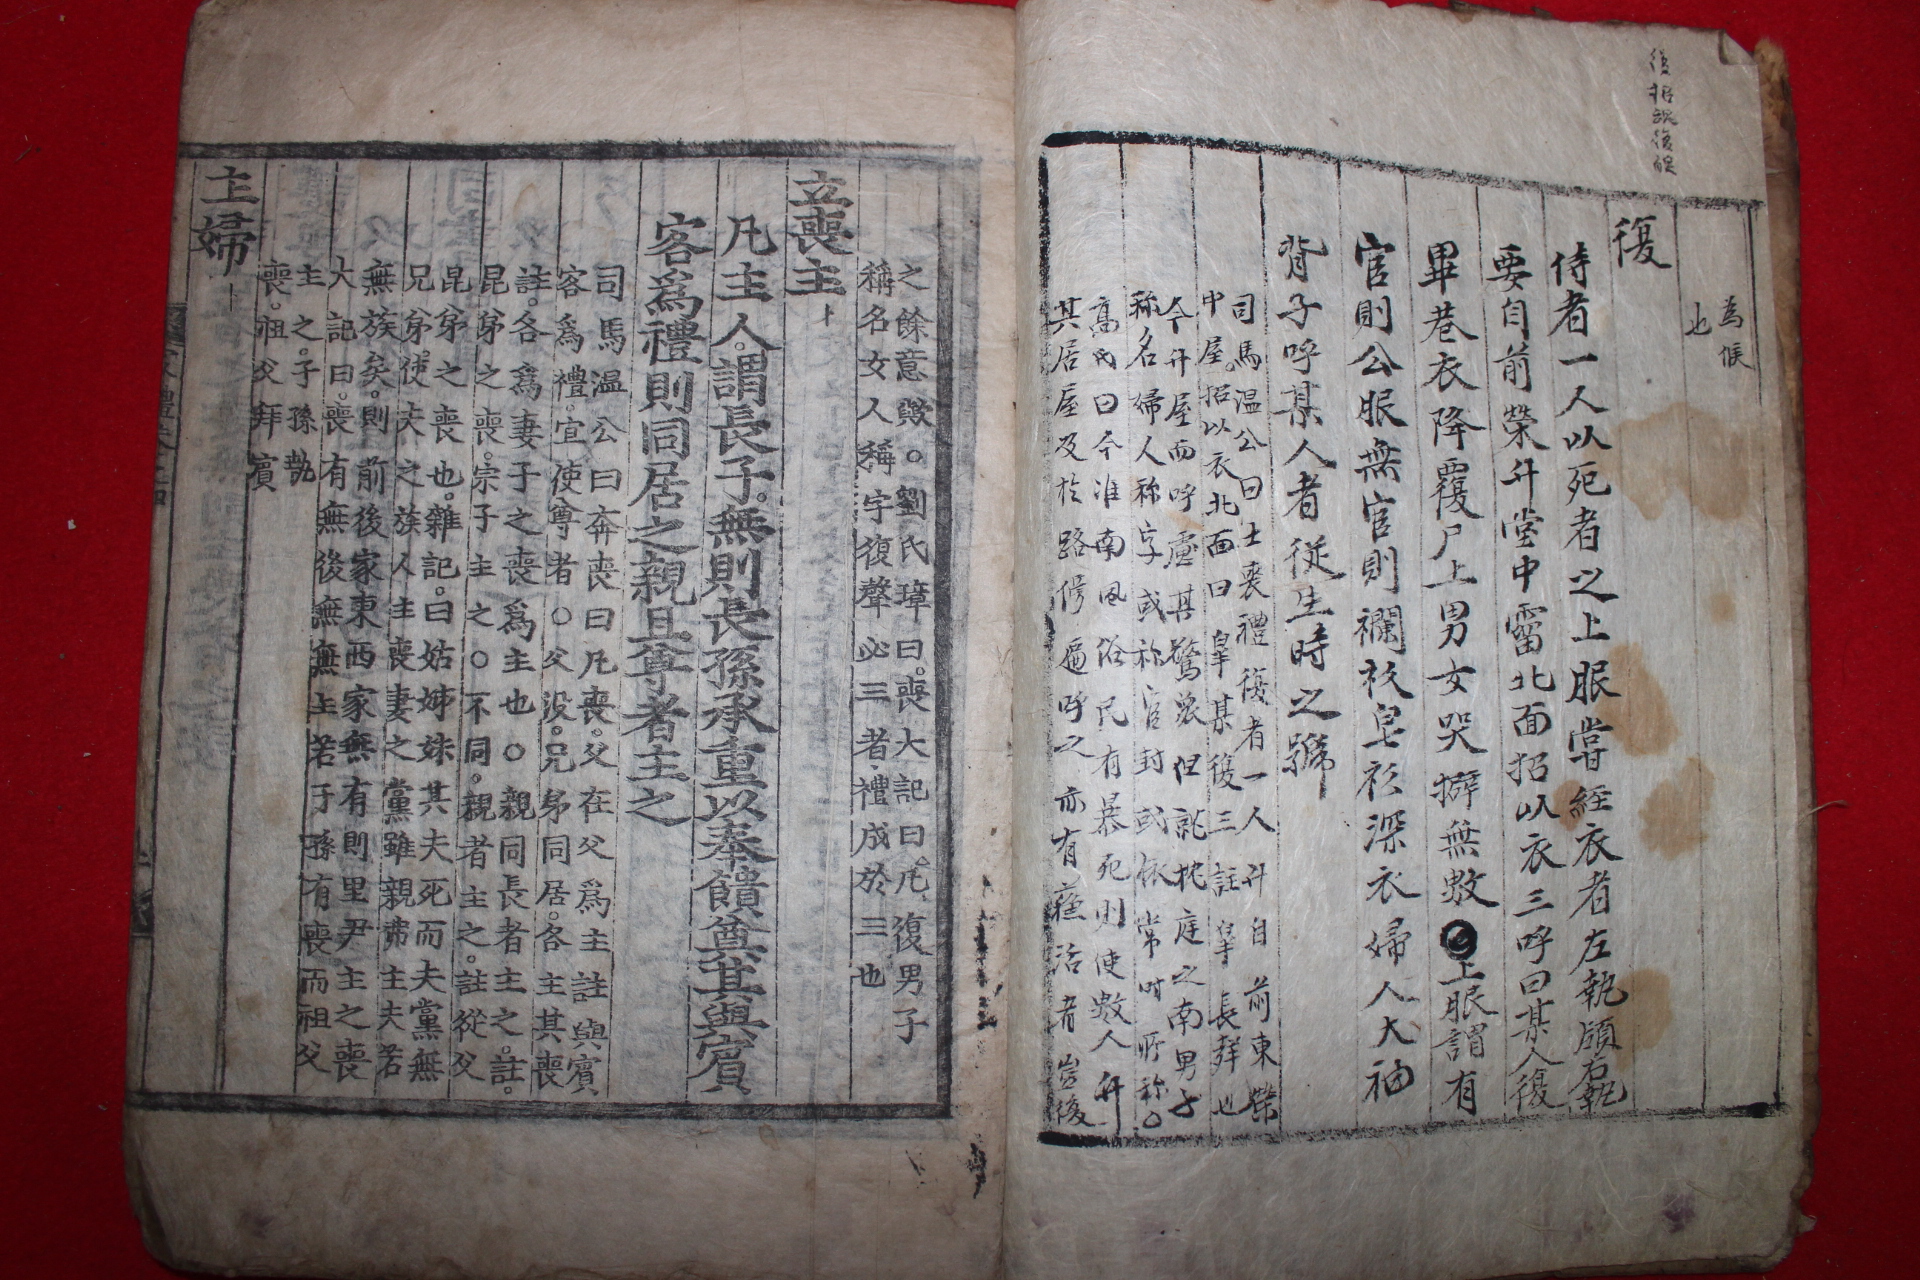 為候
也
復
侍者一人以死者之上服嘗經衣者左執領右執
要自前榮升堂中霤北面招以衣三呼曰某人復
畢巷衣降覆尸上男女哭擗無數 上服謂有
官則公服無官則襴衫皂衫深衣婦人大袖
背子呼某人者従生時之號
司馬温公曰士喪禮復者一人升自前東榮
中屋招以衣北面曰皐某復三註皐長聲也
今升屋而呼慮其驚衆但就枕庭之南男子
称名婦人称字或称官封或依常時所称○
高氏曰今淮南風俗民有暴死則使數人升
其居屋及於路傍遍呼之亦有蘓活者豈復
之餘意歟○劉氏璋曰喪大記曰凡復男子
稱名女人稱字復聲必三者禮成於三也
立喪主
凡主人謂長子無則長孫承重以奉饋奠其與賓
客爲禮則同居之親且尊者主之
司馬温公曰奔喪曰凡喪父在父爲主註與賓
客爲禮宜使尊者○父没兄弟同居各主其喪
註各爲妻子之喪爲主也○親同長者主之註
昆弟之喪宗子主之○不同親者主之註從父
昆弟之喪也雜記曰姑姊妹其夫死而夫黨無
兄弟使夫之族人主喪妻之黨雖親弗主夫若
無族矣則前後家東西家無有則里尹主之喪
大記曰喪有無後無無主若子孫有喪而祖父
主之子孫執
喪祖父拜賓
主婦